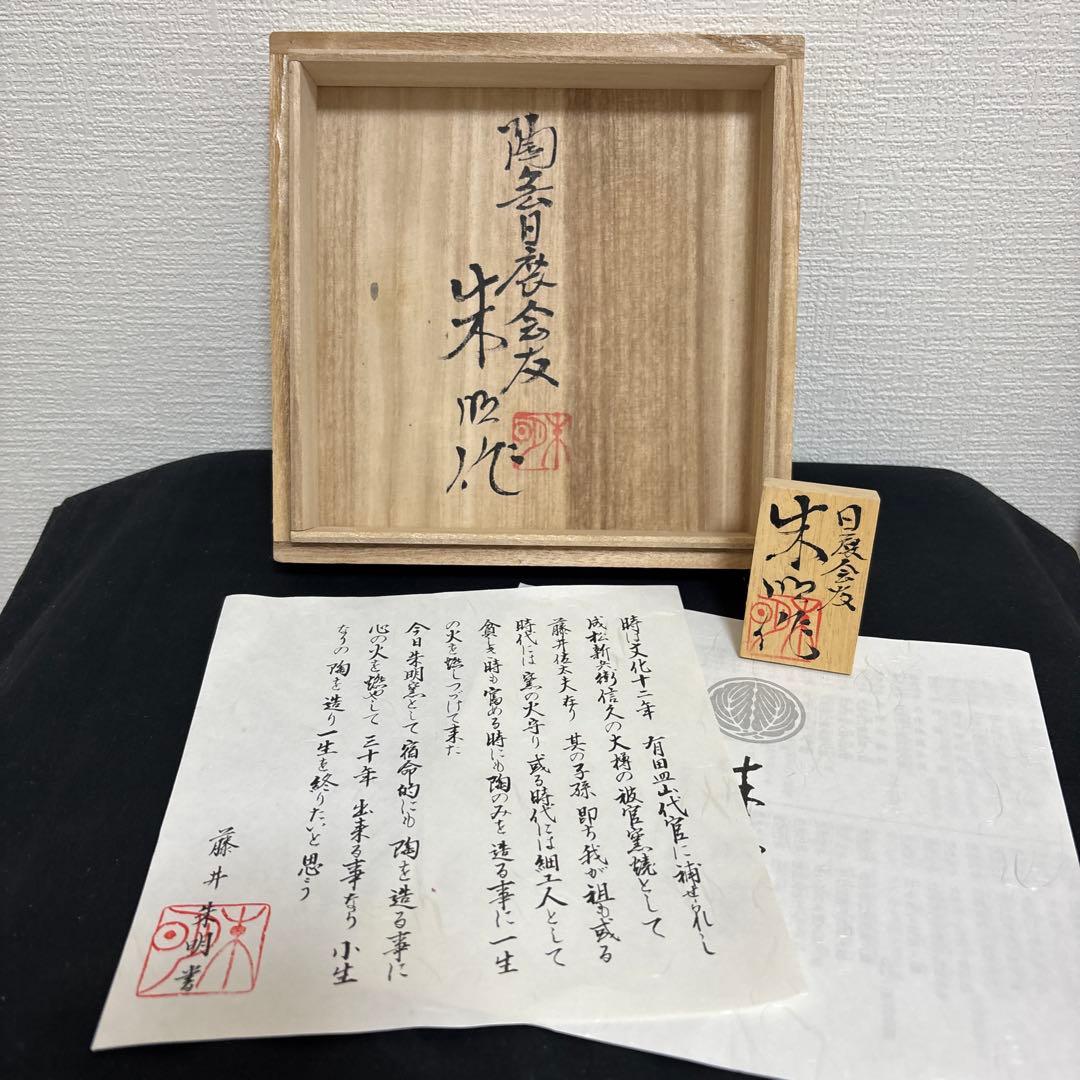 陶芸日展会友
朱明作
日展会友
朱明作
時は文化十二年 有田皿山代官に補せられし
成松新兵衛信久の大樽の被官窯焼として
藤井佐太夫あり 其の子孫 即ち我が祖も或る
時代には窯の火守り或る時代には細工人として
貧しき時も富める時にも陶のみを造る事に一生
の火を燃しつづけて来た
今日朱明窯として宿命的にも陶を造る事に
心の火を燃やして三十年 出来る事なり 小生
なりの陶を造り一生を終りたいと思う
藤井朱明書
朱